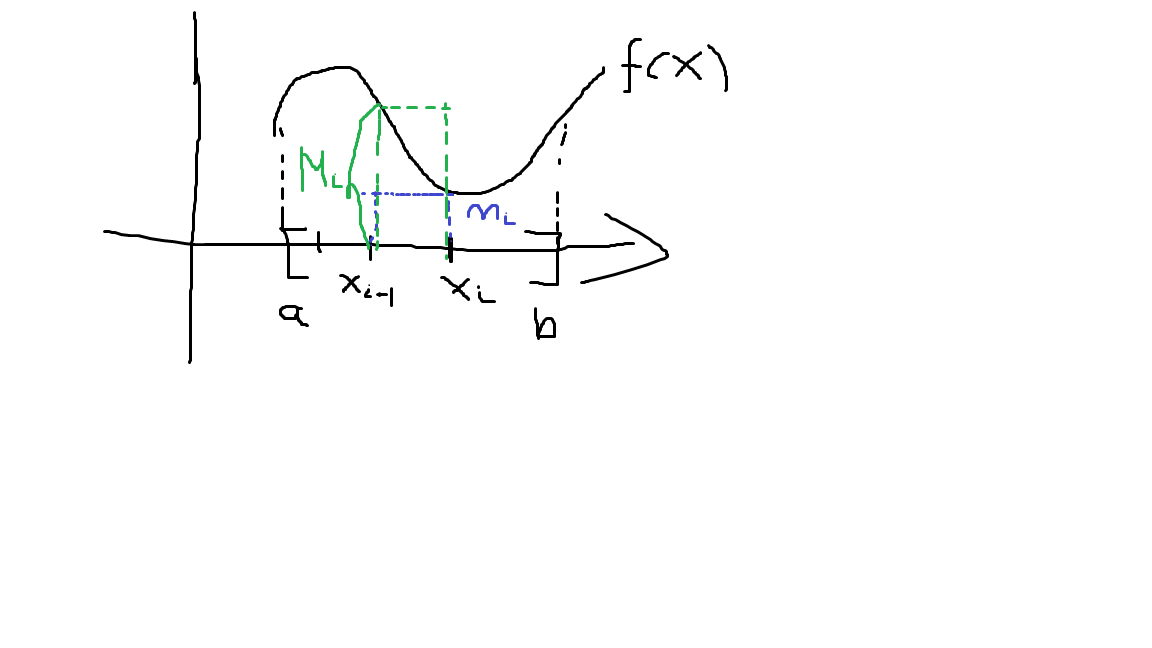 f(x)
Mi
mi
xi-1
xi
a
b